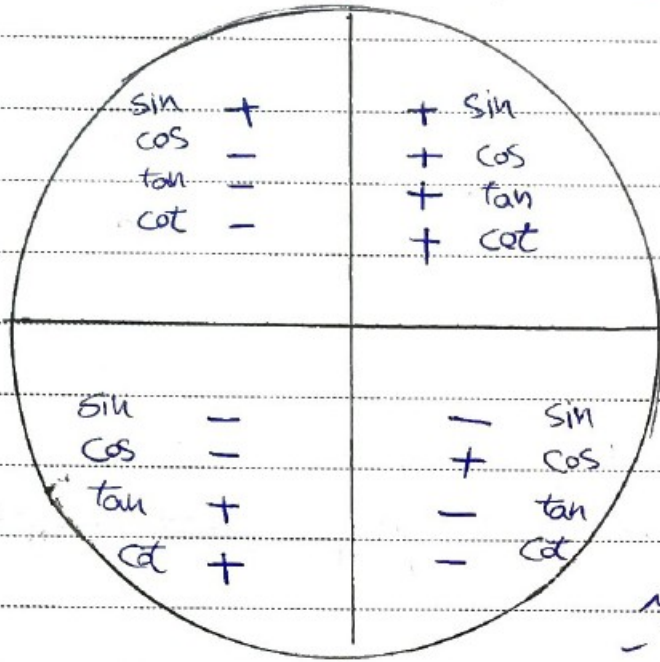 sin +
cos -
tan -
cot -
+ sin
+ cos
+ tan
+ cot
sin -
cos -
tan +
cot +
- sin
+ cos
- tan
- cot